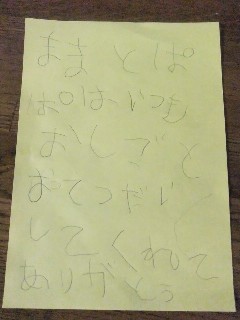 ままとぱ
ぱはいつも
おしごと
おてつだい
してくれて
ありがとう